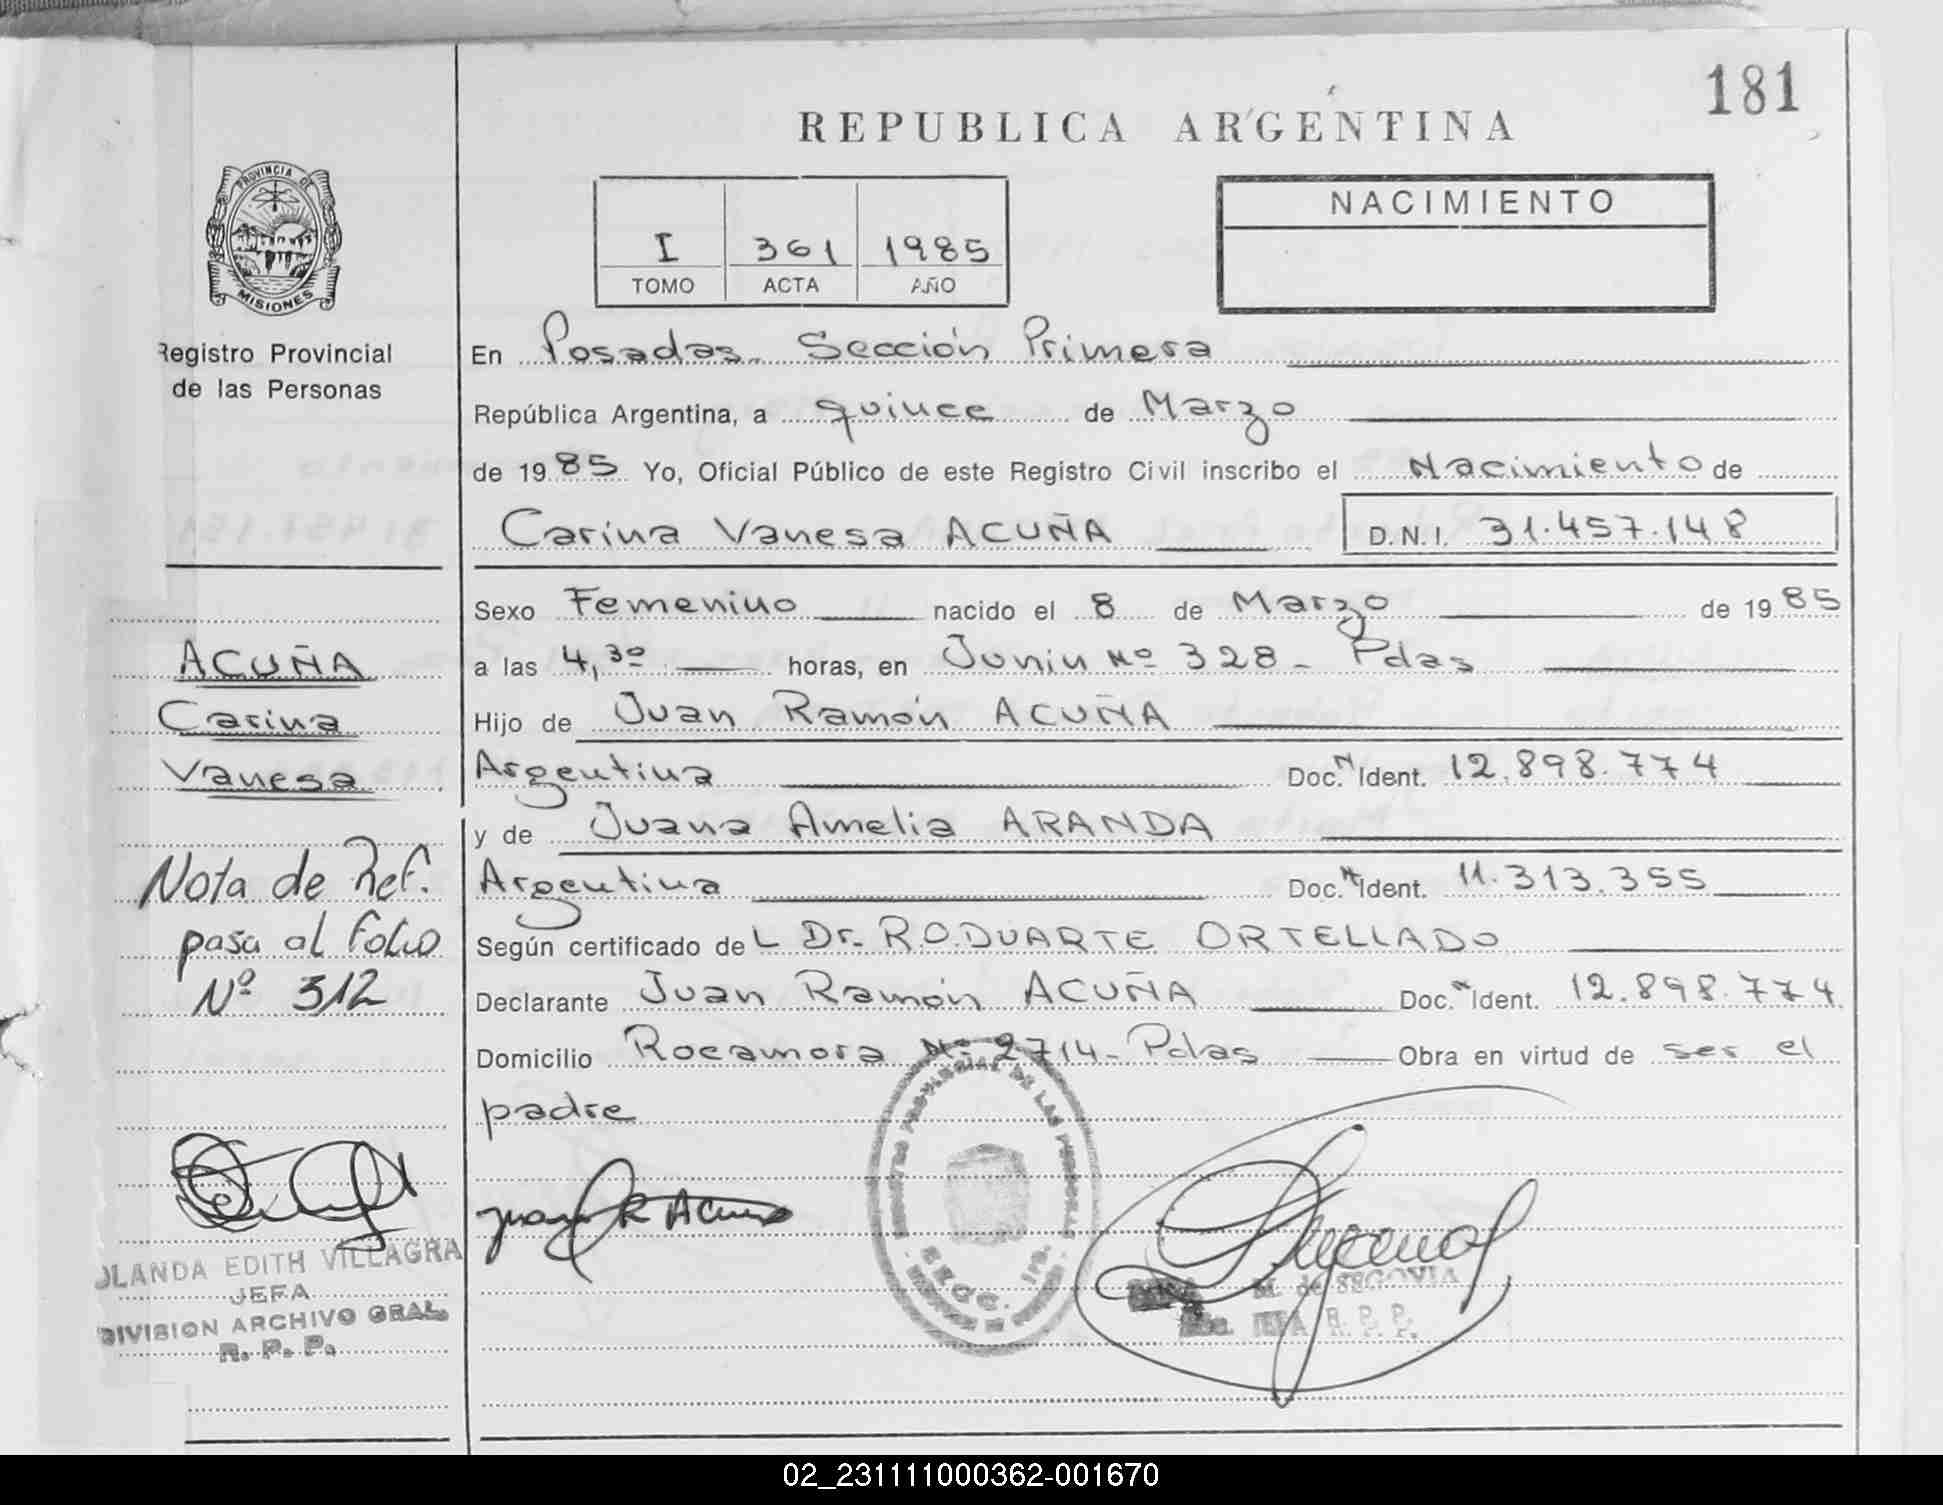 181
REPUBLICA ARGENTINA
PROVINCIA DE
MISIONES
Registro Provincial
de las Personas
I 361 1985
TOMO ACTA AÑO
NACIMIENTO
En Posadas. Sección Primera
República Argentina, a quince de Marzo
de 1985 Yo, Oficial Público de este Registro Civil inscribo el Nacimiento de
Carina Vanesa ACUÑA D.N.I. 31.457.148
Sexo Femenino nacido el 8 de Marzo de 1985
a las 4,30 horas, en Junin Nº 328 - Pdas
Hijo de Juan Ramón ACUÑA
Argentina Doc. Nº Ident. 12.898.774
y de Juana Amelia ARANDA
Argentina Doc. Nº Ident. 11.313.355
Según certificado deL Dr. R.O. DUARTE ORTELLADO
Declarante Juan Ramón ACUÑA Doc. Nº Ident. 12.898.774
Domicilio Rocamora Nº 2714 - Pdas Obra en virtud de ser el
padre
ACUÑA
Carina
Vanesa
Nota de Ref.
pasa al folio
Nº 312
OLANDA EDITH VILLAGRA
JEFA
DIVISION ARCHIVO GRAL.
R. P. P.
Juan R Acuña
M. de SEGOVIA
JEFA R. P. P.
02_231111000362-001670